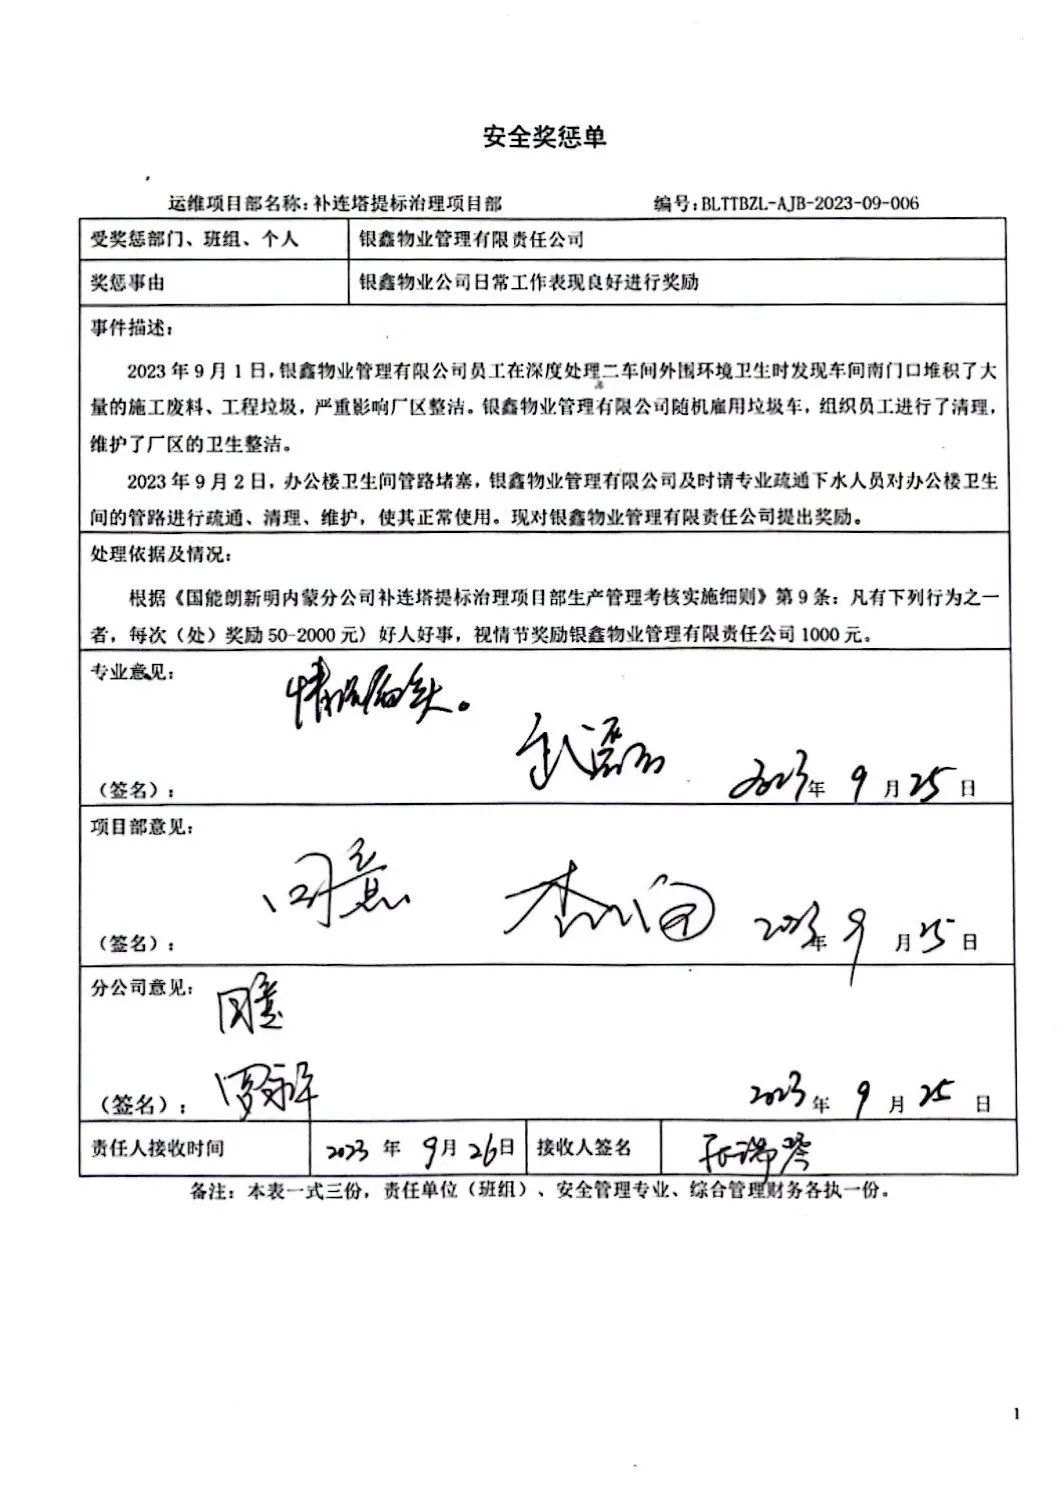 安全奖惩单
运维项目部名称：补连塔提标治理项目部 编号：BLTTBZL-AJB-2023-09-006
受奖惩部门、班组、个人 银鑫物业管理有限责任公司
奖惩事由 银鑫物业公司日常工作表现良好进行奖励
事件描述：
2023年9月1日，银鑫物业管理有限公司员工在深度处理二车间外围环境卫生时发现车间南门口堆积了大
量的施工废料、工程垃圾，严重影响厂区整洁。银鑫物业管理有限公司随机雇用垃圾车，组织员工进行了清理，
维护了厂区的卫生整洁。
2023年9月2日，办公楼卫生间管路堵塞，银鑫物业管理有限公司及时请专业疏通下水人员对办公楼卫生
间的管路进行疏通、清理、维护，使其正常使用。现对银鑫物业管理有限责任公司提出奖励。
处理依据及情况：
根据《国能朗新明内蒙分公司补连塔提标治理项目部生产管理考核实施细则》第9条：凡有下列行为之一
者，每次（处）奖励50-2000元）好人好事，视情节奖励银鑫物业管理有限责任公司1000元。
专业意见：
情况属实。
（签名）： 2023年9月25日
项目部意见：
同意
（签名）： 2023年9月25日
分公司意见：
同意
（签名）： 2023年9月25日
责任人接收时间 2023年9月26日 接收人签名
备注：本表一式三份，责任单位（班组）、安全管理专业、综合管理财务各执一份。
1